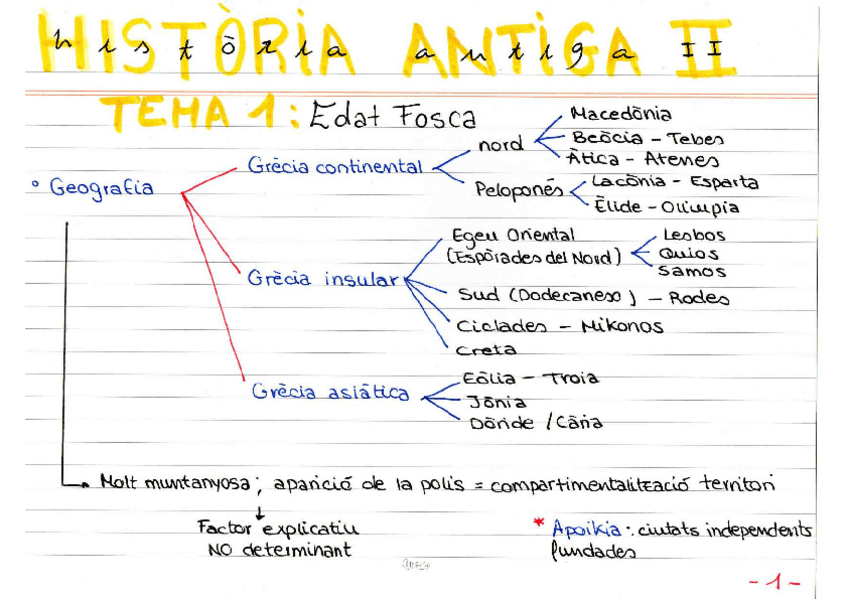 HISTÒRIA ANTIGA II
història antiga II
TEMA 1: Edat Fosca
Geografia
Grècia continental
nord
Macedònia
Beòcia - Tebes
Àtica - Atenes
Peloponés
Lacònia - Esparta
Èlide - Olimpia
Grècia insular
Egeu Oriental
(Espòrades del Nord)
Lesbos
Quios
Samos
Sud (Dodecaneso) - Rodes
Cíclades - Mikonos
Creta
Grècia asiàtica
Eòlia - Troia
Jònia
Dòride / Cària
Molt muntanyosa; aparició de la polis = compartimentalització territori
Factor explicatiu
NO determinant
* Apoikia: ciutats independents
fundades
-1-